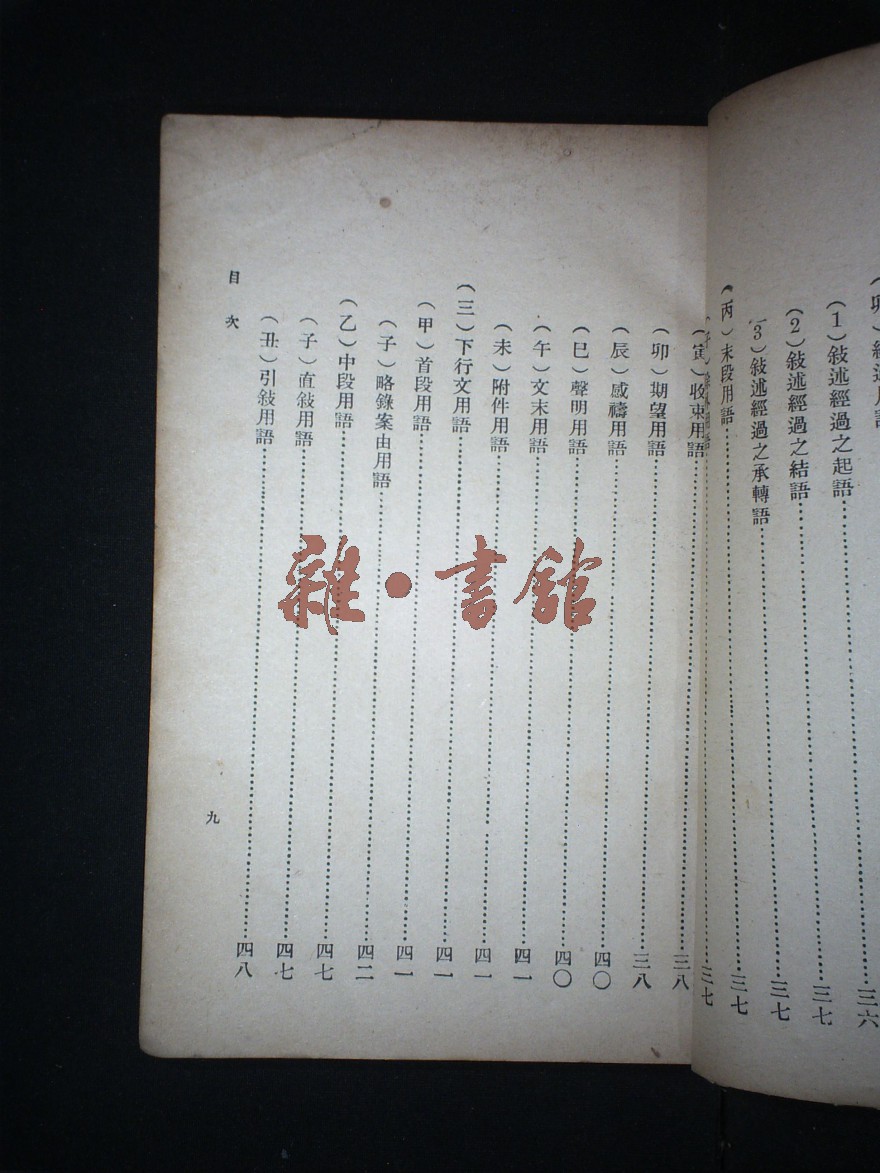 (1)敍述經過之起語……三六
(2)敍述經過之結語……三七
(3)敍述經過之承轉語……三七
(丙)末段用語……三七
三七
(寅)收束用語……三八
(卯)期望用語……三八
(辰)感禱用語……四〇
(巳)聲明用語……四〇
(午)文末用語……四一
(未)附件用語……四一
(三)下行文用語……四一
(甲)首段用語……四一
(子)略錄案由用語……四二
(乙)中段用語……四七
(子)直敍用語……四七
(丑)引敍用語……四八
目次
九
雜·書館